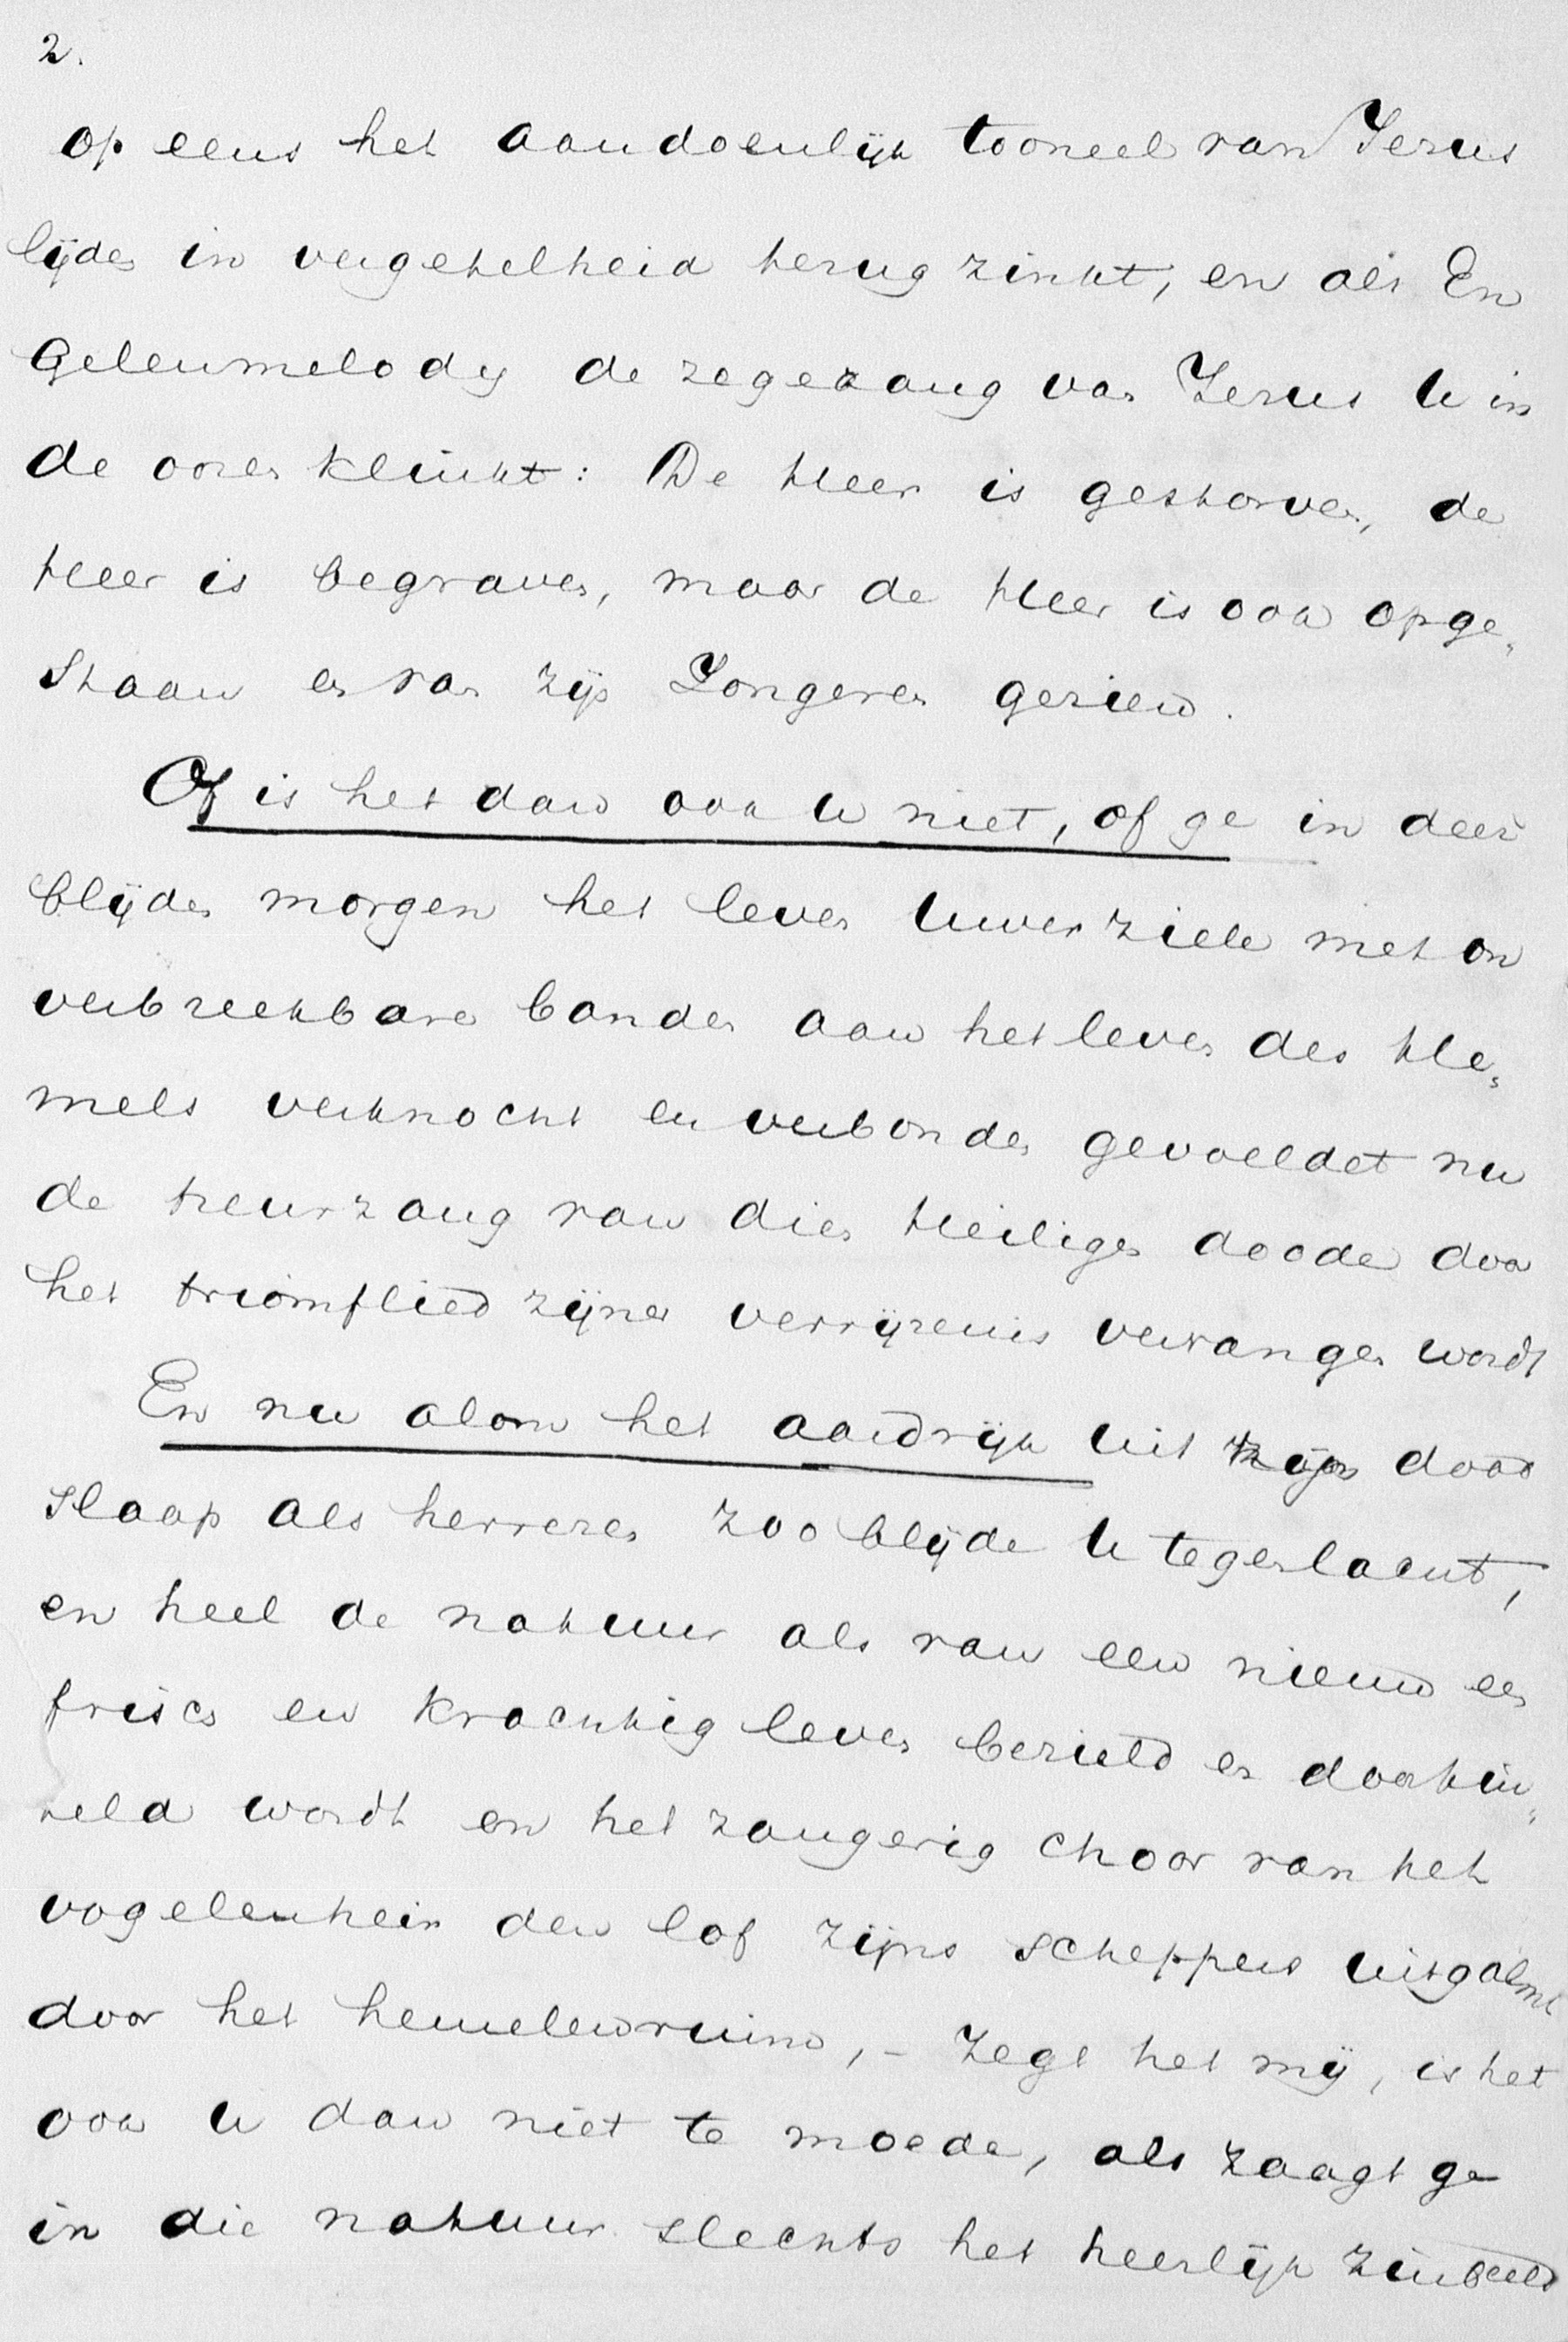 2.
op eens het aandoenlijk tooneel van Jezus
lijden in vergetelheid terug zinkt, en als En
gelenmelody de zegezang van Jezus U in
de ooren klinkt: De Heer is gestorven, de
Heer is begraven, maar de Heer is ook opge„
staan en van zijn Jongeren gezien.
Of is het dan ook U niet, of ge in deez'
blijden morgen het leven Uwer ziele met on
verbreekbare banden aan het leven des He„
mels verknocht en verbonden gevoeldet nu
de treurzang van dien Heiligen doode door
het triomflied zijner verrijzenis vervangen wordt
En nu alom het aardrijk uit zijn dood
slaap als herrezen zoo blijde U tegenlacht,
en heel de natuur als van een nieuw en
frisch en krachtig leven bezield en doortin„
teld wordt en het zangerig choor van het
vogelenheir den lof zijns scheppers uitgalmt
door het hemelenruim, – Zegt het mij, is het
ook U dan niet te moede, als zaagt ge
in die natuur slechts het heerlijk zinbeeld